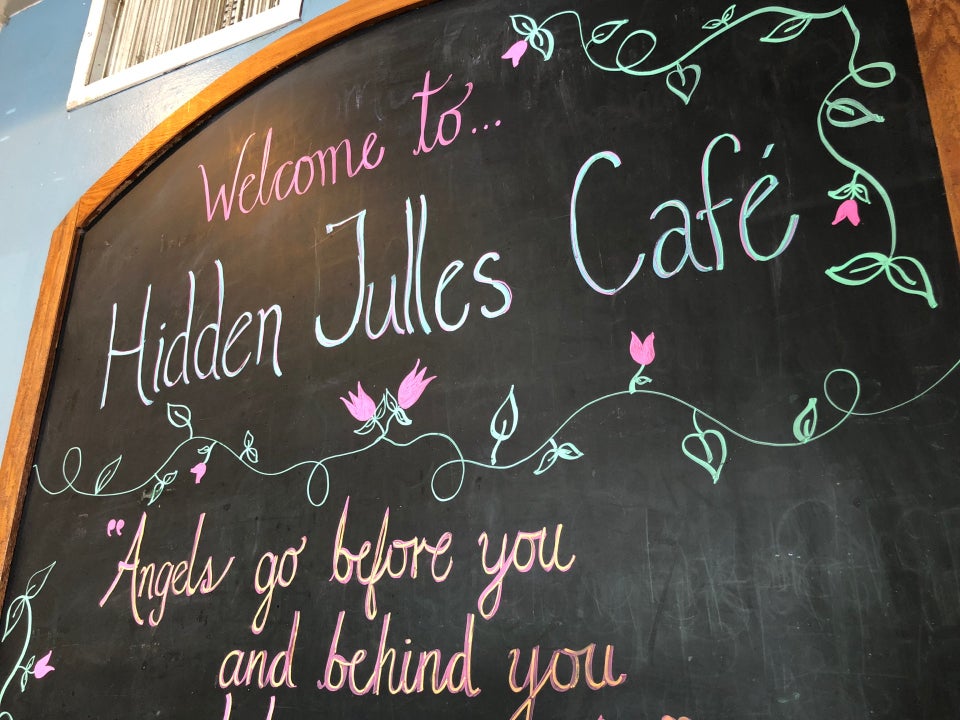 Welcome to...
Hidden Julles Café
"Angels go before you
and behind you